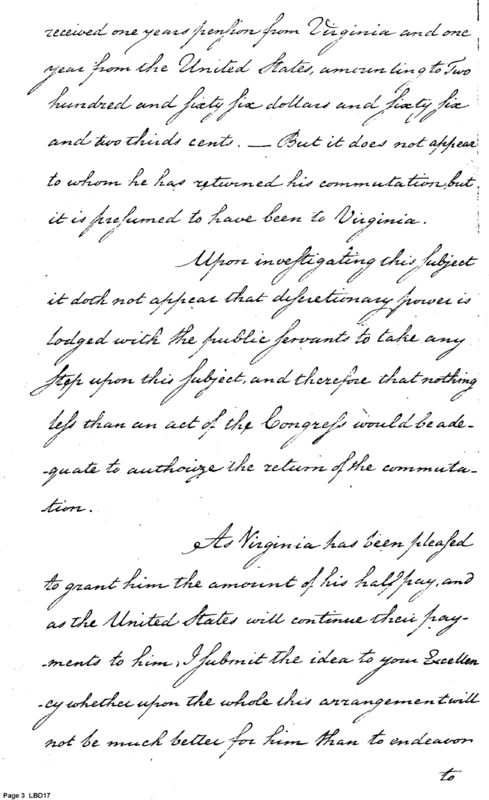 received one years pension from Virginia and one
year from the United States, amounting to Two
hundred and sixty six dollars and sixty six
and two thirds cents. — But it does not appear
to whom he has returned his commutation, but
it is presumed to have been to Virginia.
Upon investigating this subject
it doth not appear that discretionary power is
lodged with the public servants to take any
step upon this subject, and therefore that nothing
less than an act of the Congress would be ade-
-quate to authorize the return of the commuta-
tion.
As Virginia has been pleased
to grant him the amount of his half pay, and
as the United States will continue their pay-
-ments to him, I submit the idea to your Excellen
-cy whether upon the whole this arrangement will
not be much better for him than to endeavor
to
Page 3 LBD17